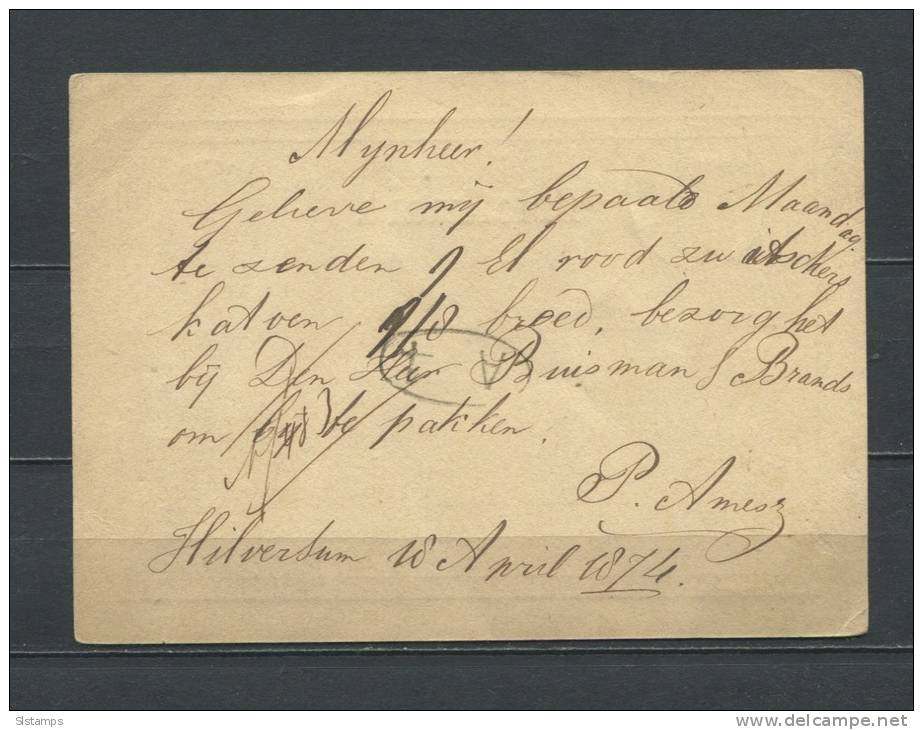 Mynheer!
Gelieve mij bepaald Maandag.
te zenden 9 El rood zwitschers
katoen 9/8 breed, bezorg het
bij Den Heer Buisman & Brands
om te pakken.
P. Amesz
Hilversum 18 April 1874.
Slstamps
www.delcampe.net